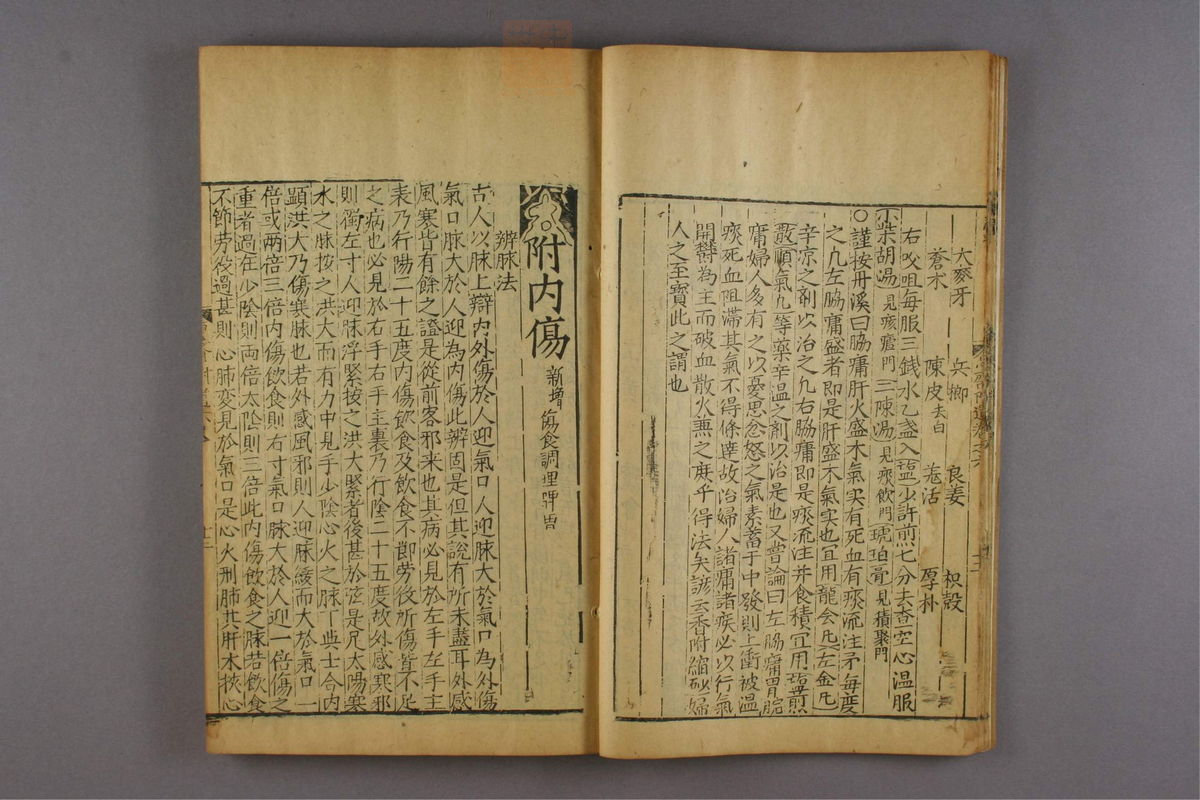 大麥牙　兵郷　良姜　枳殼
蒼朮　陳皮去白　羗活　厚朴
右㕮咀每服三錢水乙盞入塩少許煎七分去柤空心温服
小柴胡湯見痎瘧門二陳湯見痰飲門琥珀膏見積聚門
○謹按丹溪曰脇痛肝火盛木氣实有死血有痰流注矛每度
之凢左脇痛盛者即是肝盛木氣实也宜用龍会凢左金凢
辛凉之剤以治之凢右脇痛即是痰流注并食積冝用塩煎
散順氣凢等藥辛温之剤以治是也又嘗論曰左脇痛胃脘
痛婦人多有之以憂思忿怒之氣素蓄于中發則上衝被温
痰死血阻滞其氣不得條逹故治婦人諸痛諸疾必以行氣
開欝為主而破血散火兼之庶乎得法矣諺云香附縮砂婦
人之至寳此之謂也
附内傷　新增傷食調理脾胃
辨脉法
古人以脉上辯内外傷於人迎氣口人迎脉大於氣口為外傷
氣口脉大於人迎為内傷此辨固是但其說有所未盡耳外感
風寒皆有餘之證是從前客邪来也其病必見於左手左手主
表乃行陽二十五度内傷飲食及飲食不節劳役所傷皆不足
之病也必見於右手右手主裏乃行隂二十五度故外感寒邪
則獨左寸人迎脉浮緊按之洪大緊者後甚於弦是足太陽寒
水之脉按之洪大而有力中見手少隂心火之脉丁與壬合内
顯洪大乃傷寒脉也若外感風邪則人迎脉緩而大於氣口一
倍或两倍三倍内傷飲食則右寸氣口脉大於人迎一倍傷之
重者過在少隂則両倍太隂則三倍此内傷飲食之脉若飲食
不節劳役過甚則心肺变見於氣口是心火刑肺其肝木挾心